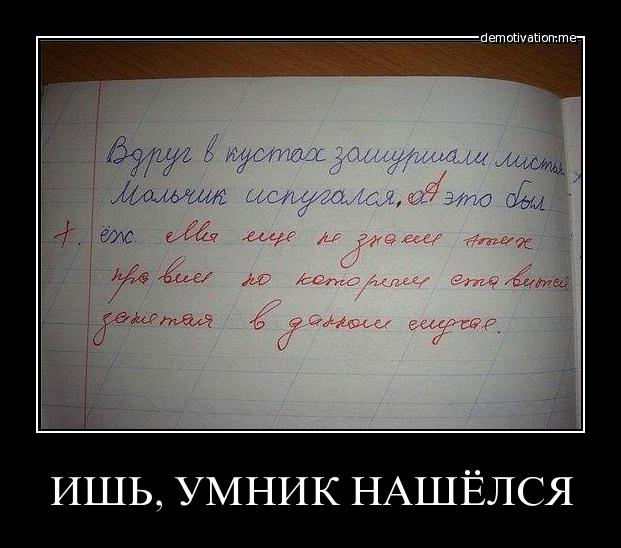 demotivation.me
Вдруг в кустах зашуршали листья
Мальчик испугался, а это был
ёж. Мы еще не знаем этих
правил по которым ставится
запятая в данном случае.
ИШЬ, УМНИК НАШЁЛСЯ